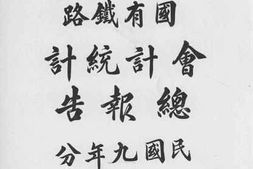 國有鐵路
會計統計
總報告
民國九年分